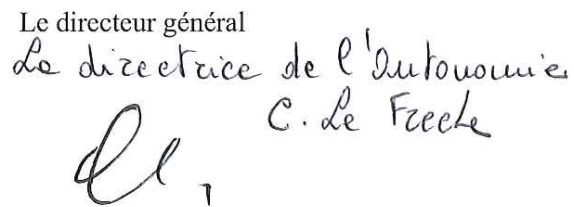 Le directeur général
La directrice de l'Autonomie
C. Le Frech